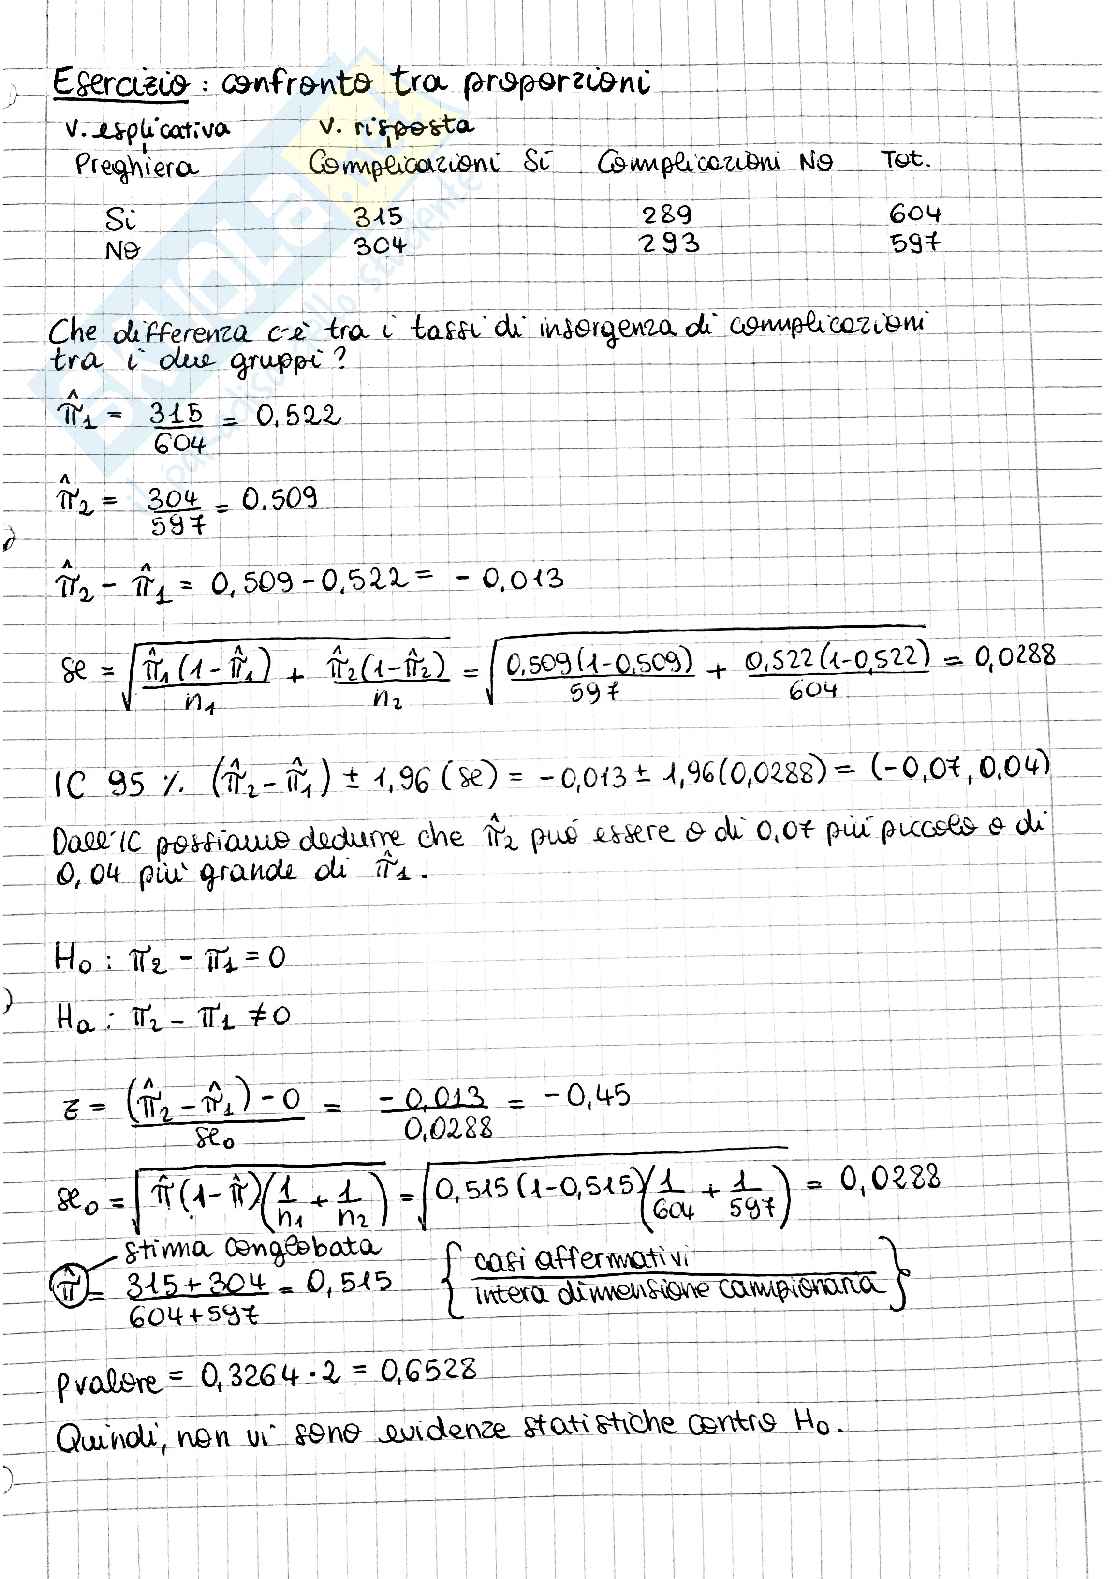 Esercizio: confronto tra proporzioni
V. esplicativa V. risposta
Preghiera Complicazioni Sì Complicazioni No Tot.
Sì 315 289 604
No 304 293 597
Che differenza c'è tra i tassi di insorgenza di complicazioni
tra i due gruppi?
π̂1 = 315/604 = 0,522
π̂2 = 304/597 = 0.509
π̂2 - π̂1 = 0,509 - 0,522 = - 0,013
se = √(π̂1(1-π̂1)/n1 + π̂2(1-π̂2)/n2) = √(0,509(1-0,509)/597 + 0,522(1-0,522)/604) = 0,0288
IC 95 % (π̂2 - π̂1) ± 1,96 (se) = -0,013 ± 1,96(0,0288) = (-0,07, 0,04)
Dall'IC possiamo dedurre che π̂2 può essere o di 0,07 più piccolo o di
0,04 più grande di π̂1.
H0 : π2 - π1 = 0
Ha : π2 - π1 ≠ 0
z = (π̂2 - π̂1) - 0 / se0 = -0,013/0,0288 = -0,45
se0 = √(π̂(1-π̂)(1/n1 + 1/n2)) = √(0,515(1-0,515)(1/604 + 1/597)) = 0,0288
stima conglobata
π̂ = 315+304/604+597 = 0,515 {casi affermativi/intera dimensione campionaria}
pvalore = 0,3264 · 2 = 0,6528
Quindi, non vi sono evidenze statistiche contro H0.